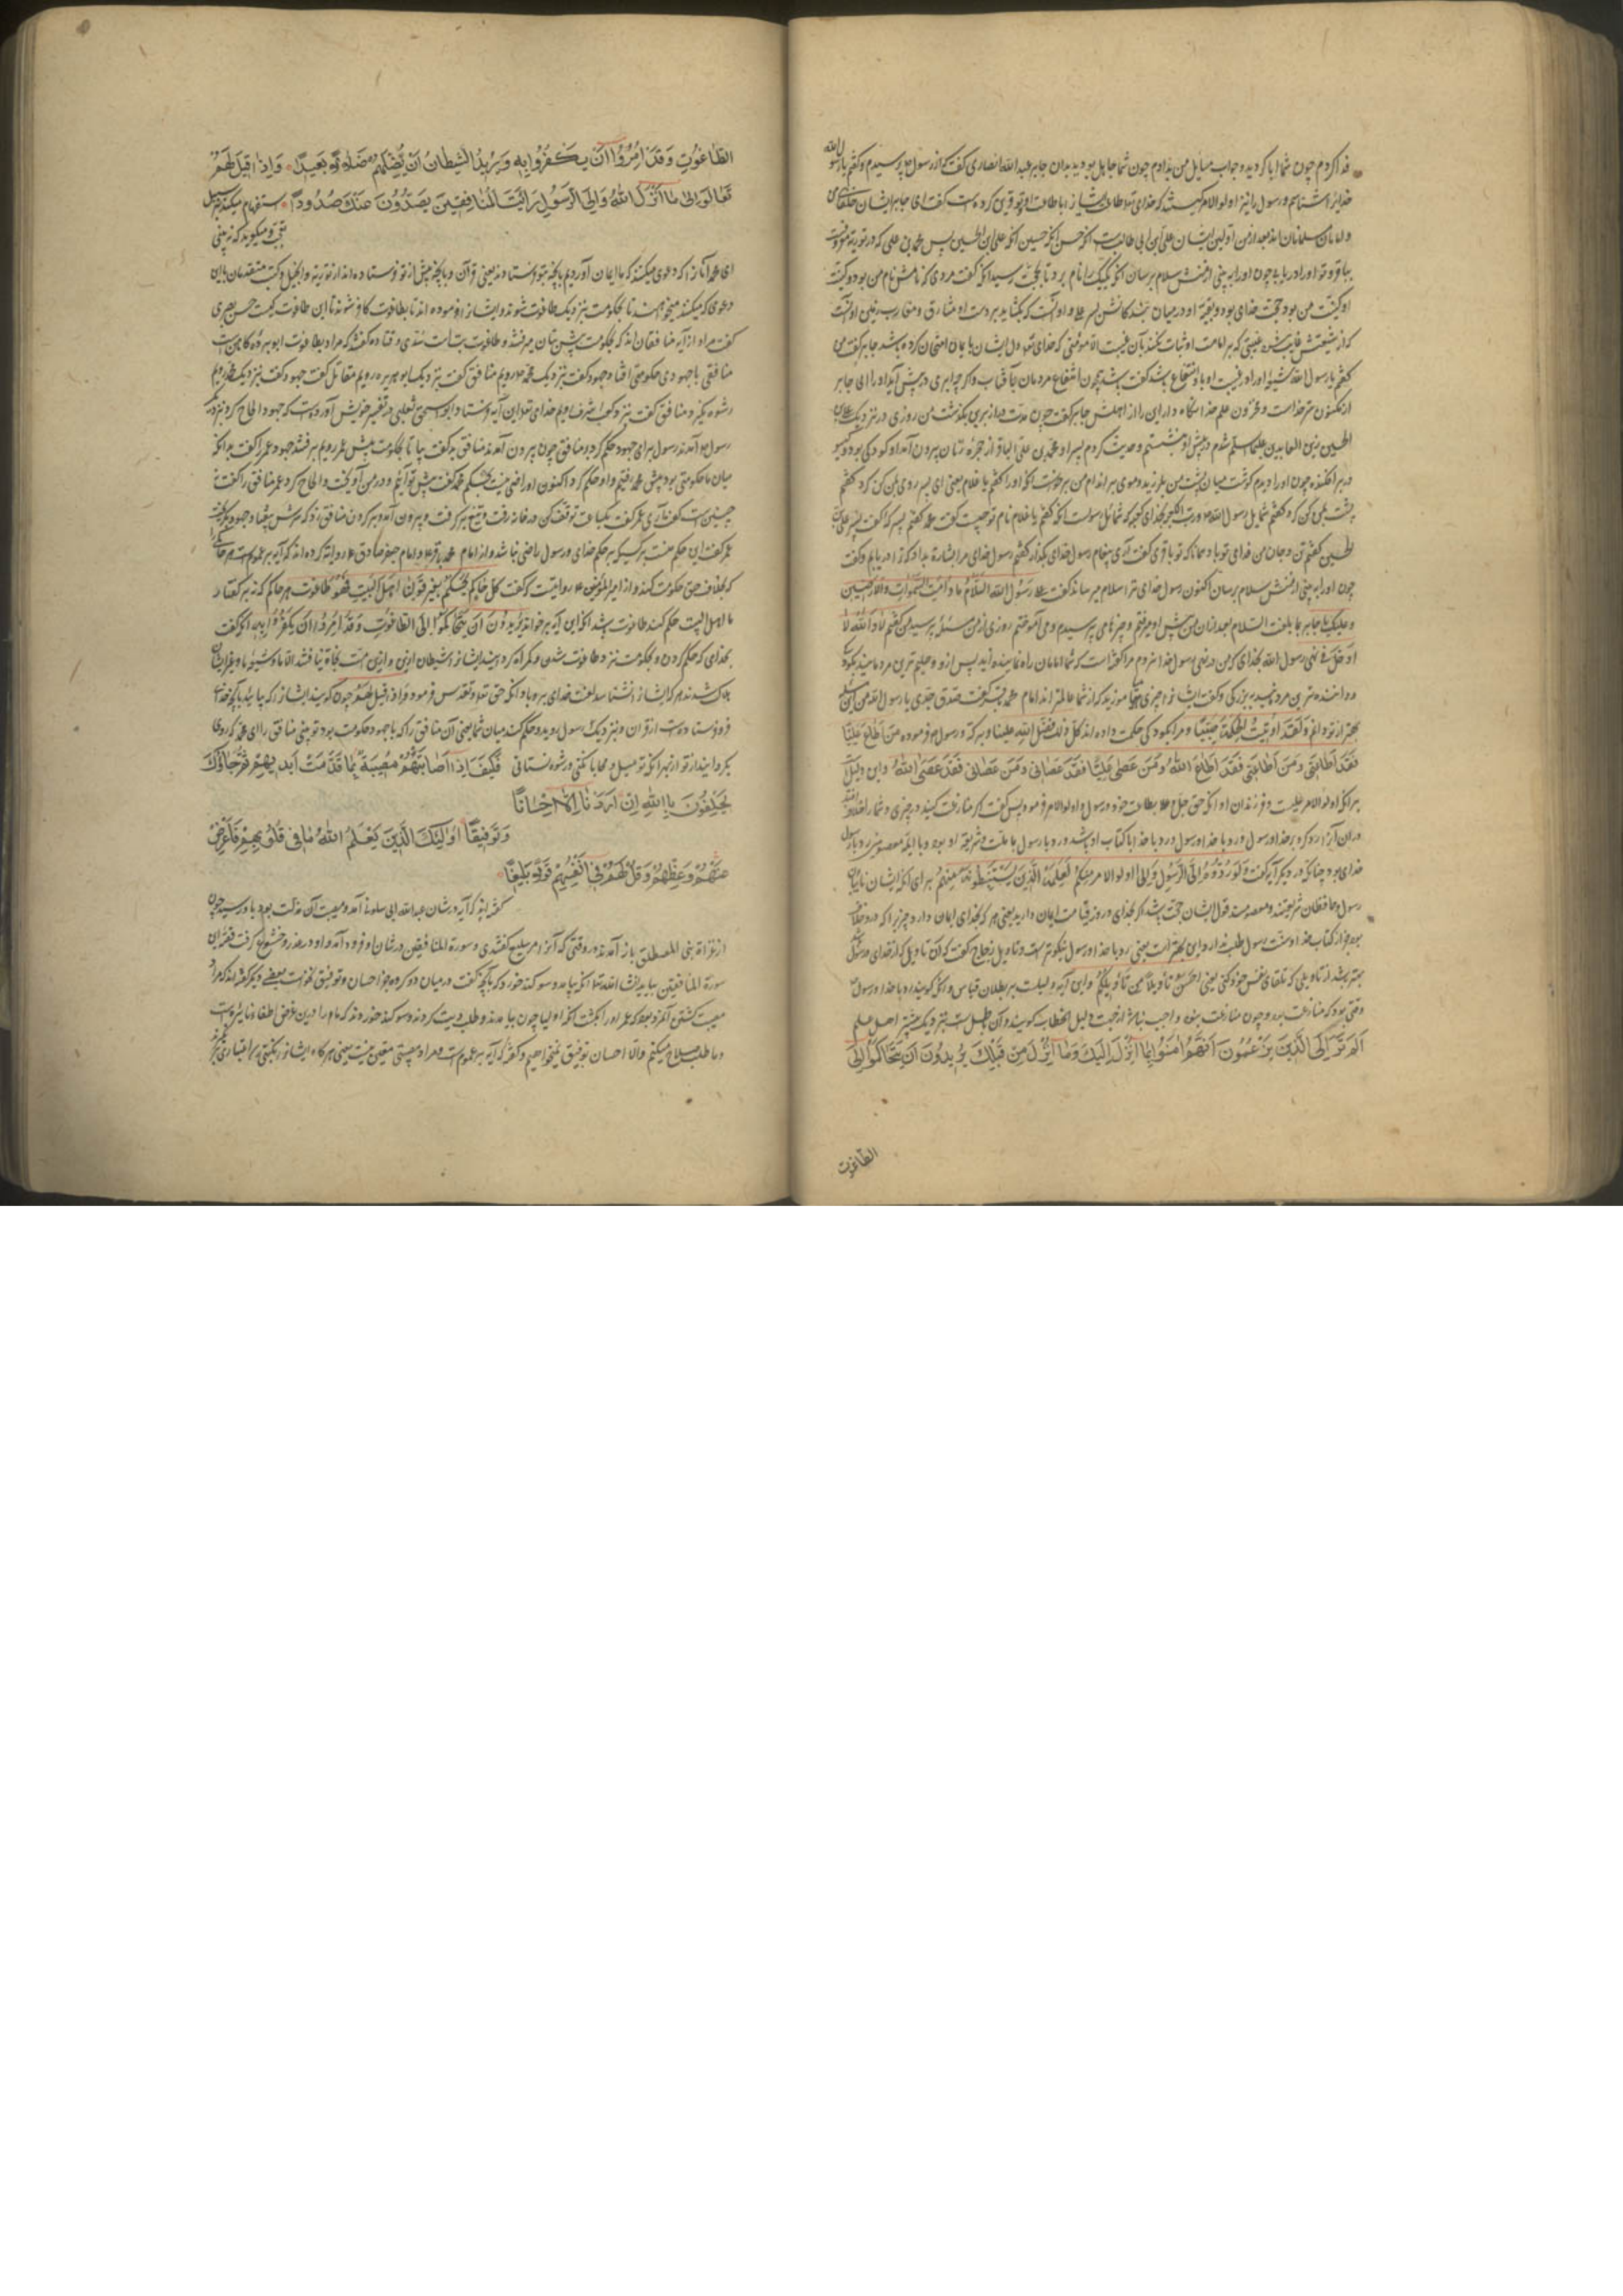 فدا کردم چون شما ابا کردید و جواب مسایل من ندادم چون شما جاهل بودید بدان جابر عبد الله انصاری گفت که از رسول پرسیدم و گفتم یا رسول الله
خدایرا شناختم و رسول را نیز اولو الامر کیستند که خدای طاعت ایشانرا با طاعت او گفت ای جابر ایشان خلفای من
و امامان مسلمانان اند بعد از من اولین ایشان علی ابن ابی طالب است انکه حسن انکه حسین انکه علی ابن الحسین پس محمد بن علی که در توریة معروفست
بباقر و تو او را دریابی چون او را ببینی از منش سلام برسان انکه یک یک را نام برد تا بحجت رسید انکه گفت مردی که نامش نام من بود و کنیت
او کنیت من بود حجت خدای بود و بقیه او در میان بندکانش پسر و او آنست که بکشاید بر دست او مشارق و مغارب زمین او آنست
که از شیعتش غایب شود غیبتی که بر امامت او ثبات نکند بآن غیبت الا مؤمنی که خدای دل ایشان بایمان امتحان کرده باشد جابر گفت من
گفتم یا رسول الله شیعه او را در غیبت او باو انتفاع باشد گفت باشد همچون انتفاع مردمان بآفتاب و اگر چه ابری در پیش آید او را ای جابر
از مکنون سر خداست و مخزون علم خدا نگاه دار این راز از اهلش جابر گفت چون مدت دراز برین بگذشت من روزی در نزدیک علی بن
الحسین زین العابدین علیه السلم شدم در پیش او نشستم و حدیث کردم پسر او محمد بن علی الباقر از حجره زنان بیرون آمد او کودکی بود و کیسو
در بر افکنده چون او را دیدم گوشت میان پشت من بلرزید و موی بر اندام من برخواست انکه او را گفتم یا غلام یعنی ای پسر روی بمن کن کرد گفتم
پشت بمن کن کرد گفتم شمایل رسول الله و رب الکعبه بخدای کعبه که شمایل رسولست انکه گفتم یا غلام نام تو چیست گفت محمد گفتم پسر که گفت پسر علی بن
الحسین گفتم تن و جان من فدای تو باد همانا که تو باقری گفت آری پیغام رسول خدای بگذار گفتم رسول خدای مرا بشارت بداد که ترا دریابم و گفت
چون او را ببینی از منش سلام برسان اکنون رسول خدای ترا سلام میرساند گفت علی رسول الله السلام ما دامت السموات والارضین
وعلیک یا جابر بما بلغت السلام بعد از آن من پیش او میرفتم و چیزها می پرسیدم و می آموختم روزی از من مسئله پرسید من گفتم لا والله لا
ادخل فی نهی رسول الله بخدای که من در نهی رسول خدا نروم مرا گفته است که شما امامان راه نماینده اید پس از و حلیم ترین مردمانید بکودکی
و داننده ترین مردمانید ببزرگی و گفت ایشانرا چیزی میاموزید که از شما عالمتر اند امام محمد باقر گفت صدق جدی یا رسول الله من این مسئله
بهتر از تو دانم ولقد اوتیت الحکمة صبیا و مرا بکودکی حکمت داده اند کل ذلک بفضل الله علینا و برکته و رسول فرموده من اطاع علیا
فقد اطاعنی ومن اطاعنی فقد اطاع الله ومن عصی علیا فقد عصانی ومن عصانی فقد عصی الله و این دلیل
بر انکه اولو الامر علیست و فرزندان او انکه حق جل و علا بطاعت خود و رسول و اولو الامر فرمود پس گفت اگر منازعت کنید در چیزی و شما را خلاف افتد
در ان آنرا رد کردن بر خدا و رسول و رد با خدا و رسول رد با خدا با کتاب او باشد و رد با رسول با سنت و شریعت او بود و با ایمه معصومین رد با رسول
خدای بود چنانکه در دیگر آیه گفت ولو ردوه الی الرسول والی اولو الامر منکم لعلمه الذین یستنبطونه منهم برای انکه ایشان نایبان
رسول و حافظان شریعتند و معصومند قول ایشان حجت باشد اگر بخدای و روز قیامت ایمان دارید یعنی هر که بخدای ایمان دارد چیزیرا که درو خلافست
بجز از کتاب خدا و سنت رسول طلب ندارد و این بهتر است یعنی رد با خدا و رسول نیکوتر است و تاویل زجاج گفت که آن تاویل که از خدای و رسول باشد
بهتر باشد از تاویلی که از تلقای نفس خود کنی یعنی احسن تاویلا من تاویلکم و این آیه دلیلست بر بطلان قیاس و انکه گویند رد با خدا و رسول
وقتی بود که منازعت بود و چون منازعت نبود واجب نباشد از جهت دلیل الخطاب گویند و آن باطل است بنزدیک بیشتر اهل علم
الم تر الی الذین یزعمون انهم امنوا بما انزل الیک وما انزل من قبلک یریدون ان یتحاکموا الی
الطاغوت
الطاغوت وقد امروا ان یکفروا به ویرید الشیطان ان یضلهم ضلالا بعیدا واذا قیل لهم
تعالوا الی ما انزل الله والی الرسول رایت المنافقین یصدون عنک صدودا استفهام میکند بر سبیل
تعجب و میگوید که نه بینی
ای محمد آنانرا که دعوی میکنند که ما ایمان آوردیم بانچه بتو فرستادند یعنی قرآن و بانچه پیش از تو فرستاده اند از توریة و انجیل و کتب متقدمان با این
دعوی که میکنند میخواهند تا بحکومت بنزدیک طاغوت شوند و ایشانرا فرموده اند تا بطاغوت کافر شوند تا این طاغوت کیست حسن بصری
گفت مراد از آیه منافقان اند که بحکومت پیش بتان میرفتند و طاغوت بتانست سدی و قتاده گفتند که مراد بطاغوت ابو برده کاهن است
منافقی با جهودی حکومتی افتاد جهود گفت بنزدیک محمد رویم منافق گفت بنزدیک ابو بریره رویم مقاتل گفت جهود گفت بنزدیک محمد رویم
رشوه بگیرد منافق گفت بنزد کعب اشرف رویم خدای این آیه فرستاد و ابو اسحق ثعلبی در تفسیر خویش آورده است که جهود الحاح کرد بنزدیک
رسول آمدند رسول برای جهود حکم کرد و منافق چون بیرون آمدند منافق گفت بیا تا بحکومت پیش عمر رویم برفتند جهود عمر را گفت بدانکه
میان ما حکومتی بود پیش محمد رفتیم و او حکم کرد اکنون او راضی نیست بحکم محمد گفت پیش تو آیم و در من آویخت و الحاح کرد عمر منافق را گفت نه
چنین است گفت آری عمر گفت یکساعت توقف کن در خانه رفت و تیغ برگرفت و بیرون آمد و بر گردن منافق زد که سرش بیفتاد و جهود بگریخت
عمر گفت این حکم منست بر کسی که بحکم خدای و رسول راضی نباشد و از امام محمد باقر و امام جعفر صادق روایة کرده اند که آیه بر عموم است هر حاکمی را
که بخلاف حق حکومت کند و از امیر المؤمنین روایت که گفت کل حاکم یحکم بغیر قولنا اهل البیت فهو طاغوت هر حاکم که نه بر گفتار
ما اهل البیت حکم کند طاغوت باشد انکه این آیه بر خواند یریدون ان یتحاکموا الی الطاغوت وقد امروا ان یکفروا به انکه گفت
بخدای که حکم کردن و بحکومت نزد طاغوت شدن و گمراه کردن ایشانرا شیطان ازین و ازین امت نجات نیافتند الا ما و شیعه ما و غیر ایشان
هلاک شدند هر که ایشانرا نشناسد لعنت خدای برو باد انکه حق تعالی و تقدس فرمود واذا قیل لهم چون گویند ایشانرا که بیائید بانچه خدا
فروفرستاده است از قرآن و بنزدیک رسول روید و حکم کند میان شما یعنی آن منافق را که با جهود حکومت بود تو بینی منافق را ای محمد که روی
بگردانند از تو از بهر انکه تو میل و محابا نکنی و رشوه نستانی فکیف اذا اصابتهم مصیبة بما قدمت ایدیهم ثم جاؤک
یحلفون باالله ان اردنا الا احسانا
وتوفیقا اولئک الذین یعلم الله ما فی قلوبهم فاعرض
عنهم وعظهم وقل لهم فی انفسهم قولا بلیغا
گفته اند که آیه در شان عبد الله ابی سلول آمد و مصیبت آن مذلت بود که باو رسید چون
از غزاة بنی المصطلق باز آمدند در وقتی که آنرا مریسیع گفتندی و سورة المنافقین در شان او فرود آمد و او در عذر و خشوع گرفت قصه این
سورة المنافقین بیاید انشا الله تعالی انکه بیامد و سوگند خورد که بانچه گفت در میان دو گروه جز احسان و توفیق نخواست بعضی دیگر گفته اند که مراد
مصیبت کشتن آنمرد بود که عمر او را بکشت انکه اولیا چون بیامدند و طلب دیت کردند و سوگند خوردند که ما را درین غرض اطفاء نایره است
و ما طلب صلاح میکنیم والا احسان توفیق نمیخواهیم و گفته اند که آیه بر عموم است و مراد مصیبتی معین نیست یعنی هر گاه ایشانرا نکبتی